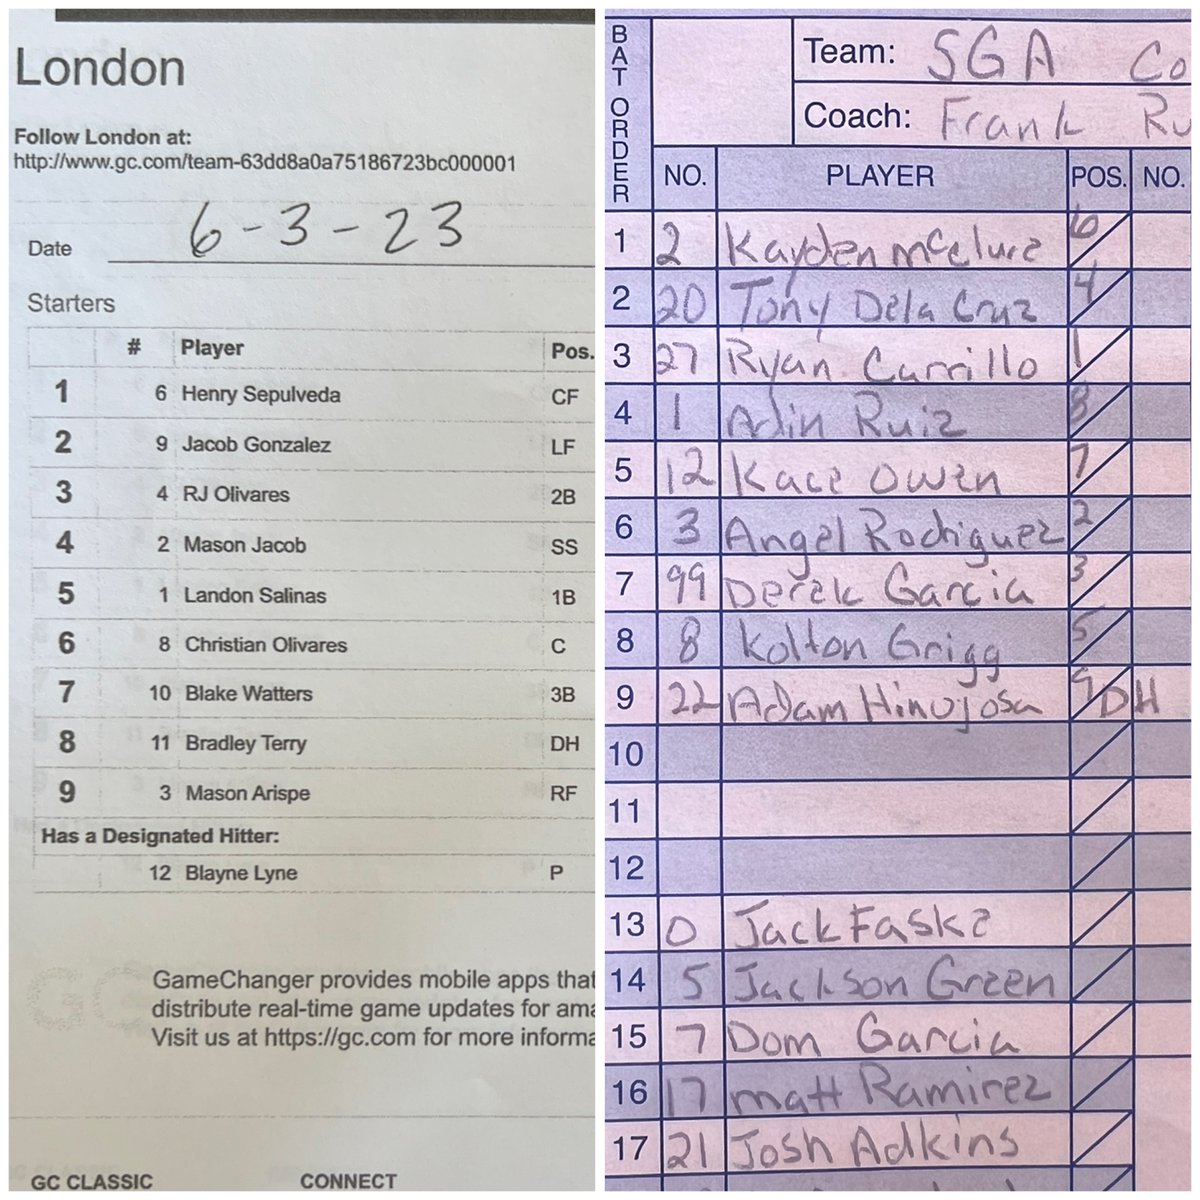 London
Follow London at:
http://www.gc.com/team-63dd8a0a75186723bc000001
Date 6-3-23
Starters
# Player Pos.
1 6 Henry Sepulveda CF
2 9 Jacob Gonzalez LF
3 4 RJ Olivares 2B
4 2 Mason Jacob SS
5 1 Landon Salinas 1B
6 8 Christian Olivares C
7 10 Blake Watters 3B
8 11 Bradley Terry DH
9 3 Mason Arispe RF
Has a Designated Hitter:
12 Blayne Lyne P
GC
GameChanger provides mobile apps that
distribute real-time game updates for ama
Visit us at https://gc.com for more informa
GC CLASSIC CONNECT
BAT ORDER
Team: SGA Co
Coach: Frank Ru
NO. PLAYER POS. NO.
1 2 Kayden McClure 6
2 20 Tony Dela Cruz 4
3 27 Ryan Carrillo 1
4 1 Arlin Ruiz 8
5 12 Kace Owen 7
6 3 Angel Rodriguez 2
7 99 Derek Garcia 3
8 8 Kolton Grigg 5
9 22 Adam Hinojosa 9 DH
10
11
12
13 0 Jack Faske
14 5 Jackson Green
15 7 Dom Garcia
16 17 Matt Ramirez
17 21 Josh Adkins